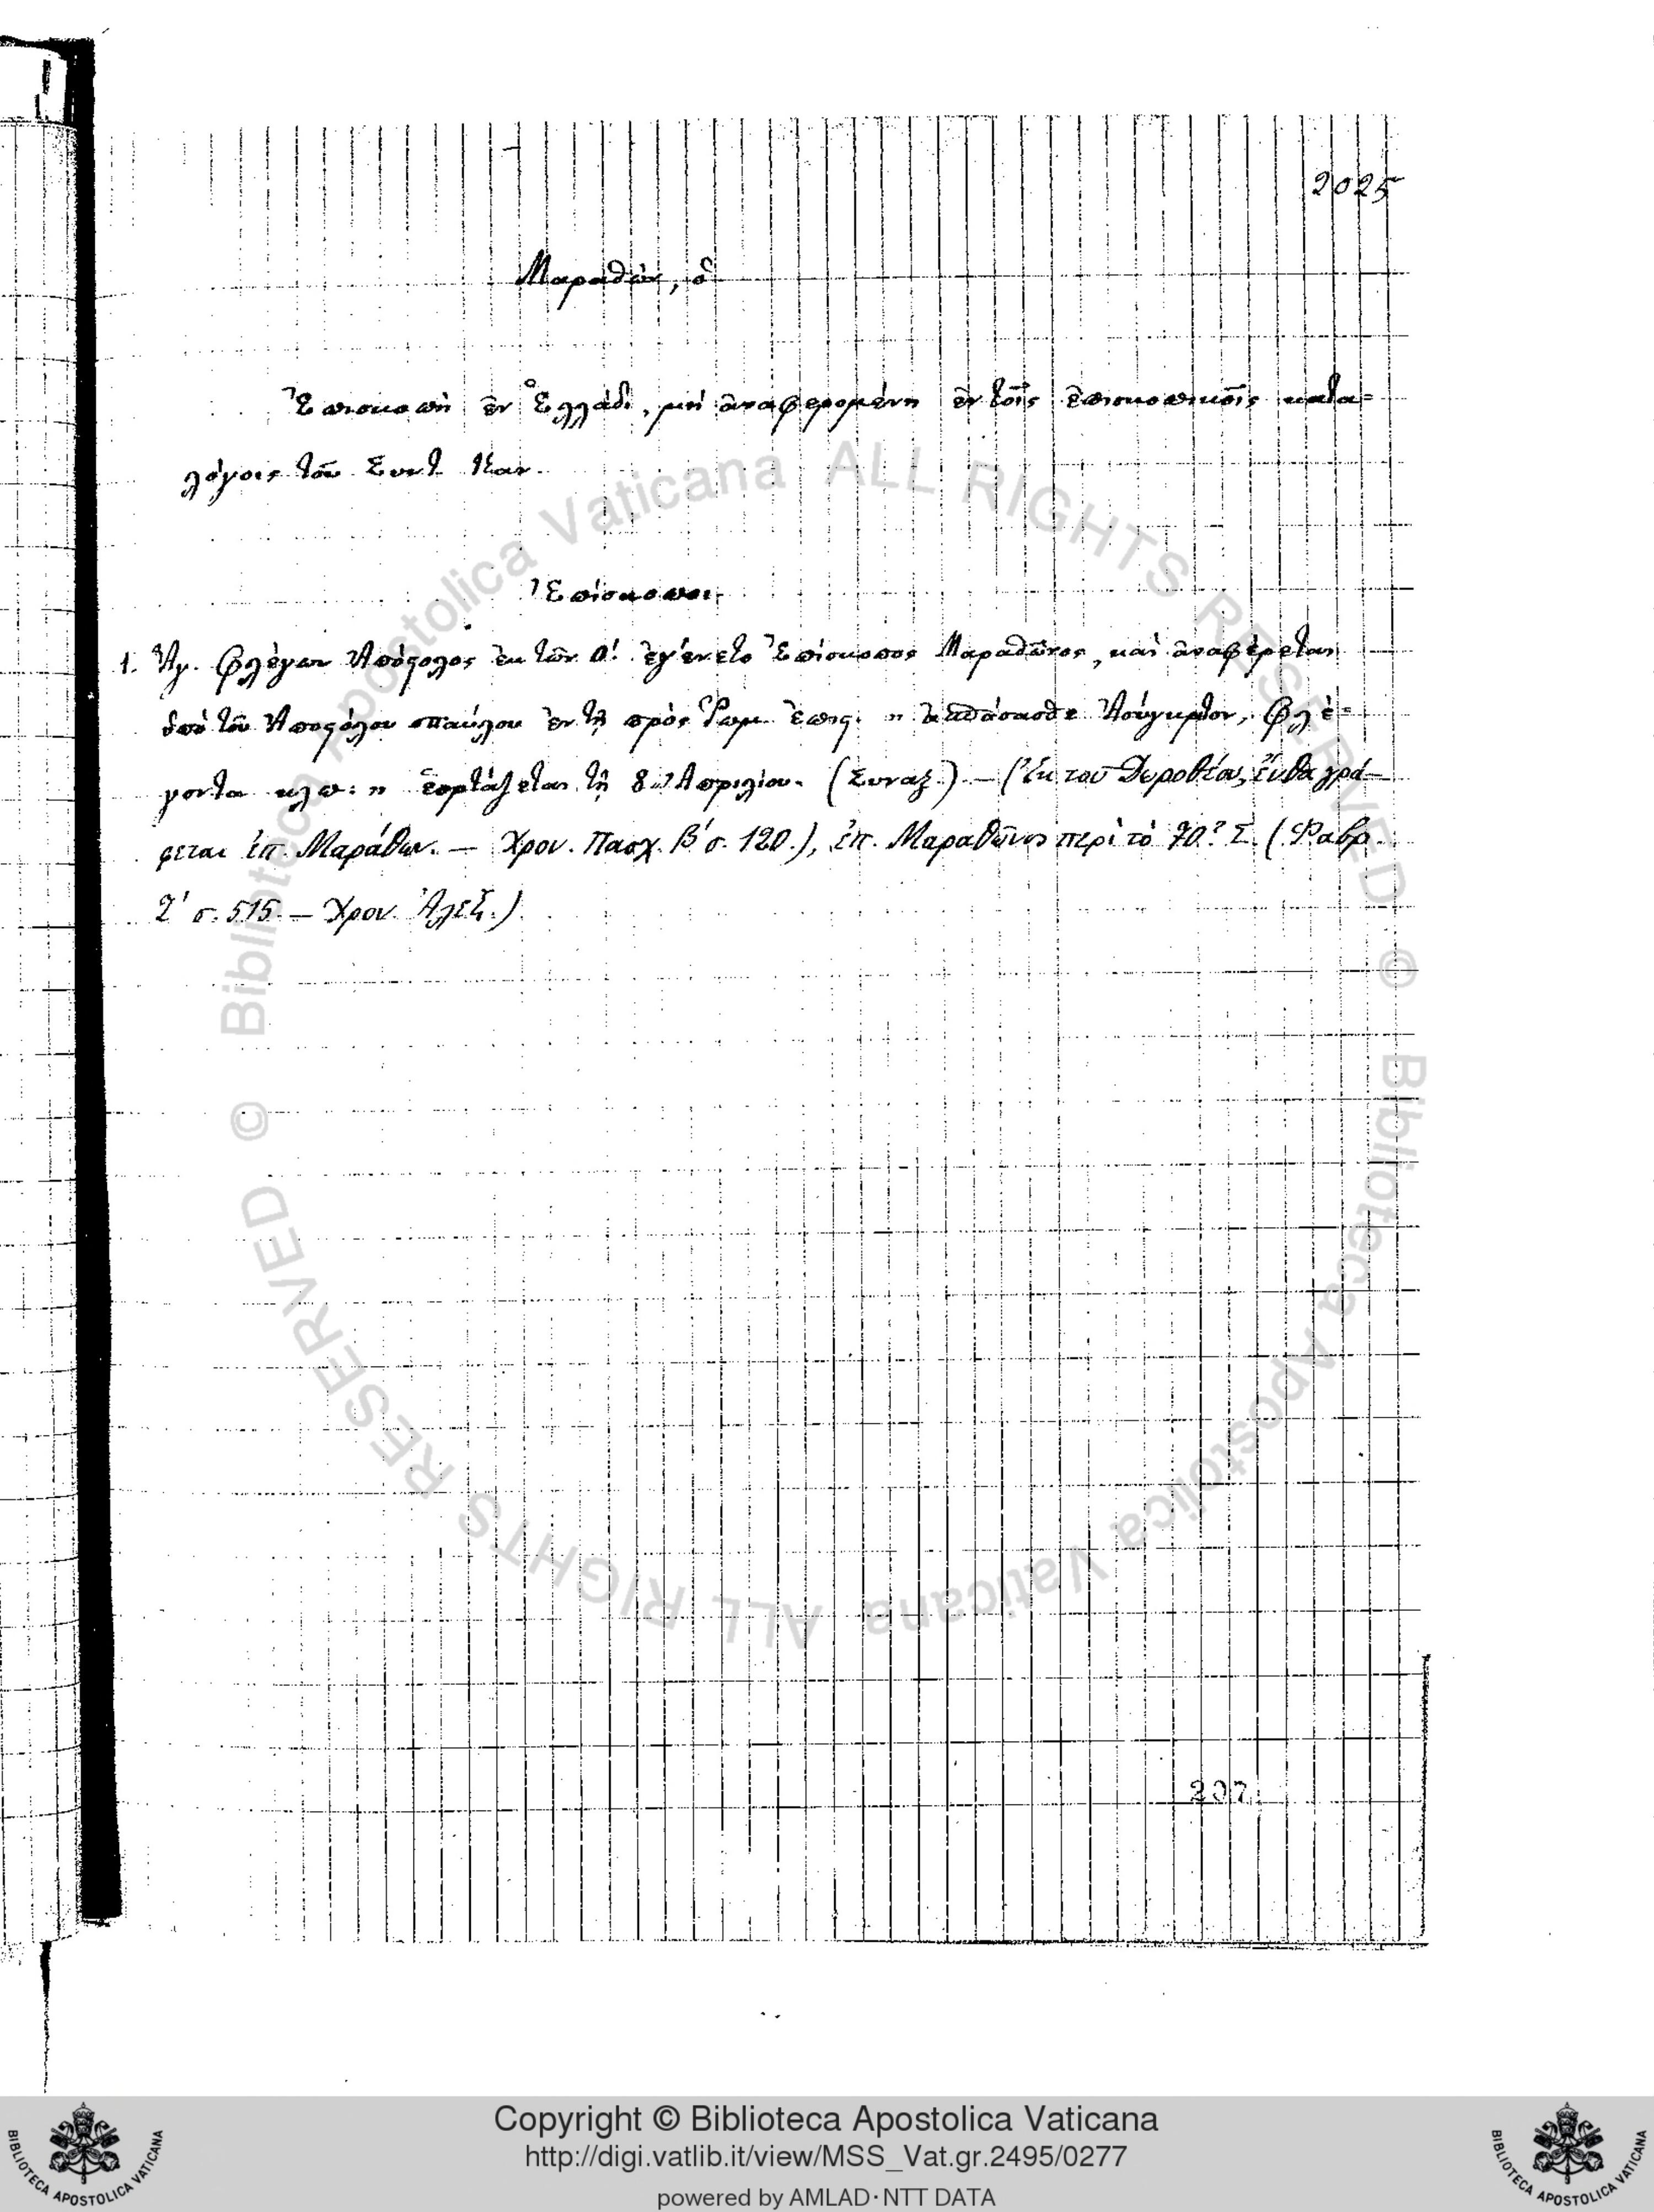 2025
Μαραθών, ὁ
Ἐπισκοπὴ ἐν Ἑλλάδι, μὴ ἀναφερομένη ἐν τοῖς ἐπισκοπικοῖς κατα=
λόγοις τοῦ Συντ. Καν.
Ἐπίσκοποι
1. Ἁγ. Φλέγων Ἀπόστολος ἐκ τῶν Ο! ἐγένετο Ἐπίσκοπος Μαραθῶνος, καὶ ἀναφέρεται
ὑπὸ τοῦ Ἀποστόλου Παύλου ἐν τῇ πρὸς Ῥωμ. Ἐπις. " ἀσπάσασθε Ἀσύγκριτον, Φλέ=
γοντα κλπ: " ἑορτάζεται τῇ 8 Ἀπριλίου. (Συναξ.) — (Ἐκ τοῦ Δωροθέου, ἔνθα γρά-
φεται ἐπ. Μαράθων. — Χρον. Πασχ. Β' σ. 120.), ἐπ. Μαραθῶνος περὶ τὸ 70? Σ. (Φαβρ.
Ζ' σ. 515. — Χρον. Ἀλεξ.)
207
© Biblioteca Apostolica Vaticana ALL RIGHTS RESERVED
© Biblioteca Apostolica Vaticana ALL RIGHTS RESERVED
Copyright © Biblioteca Apostolica Vaticana
http://digi.vatlib.it/view/MSS_Vat.gr.2495/0277
powered by AMLAD·NTT DATA
BIBLIOTECA APOSTOLICA VATICANA
BIBLIOTECA APOSTOLICA VATICANA